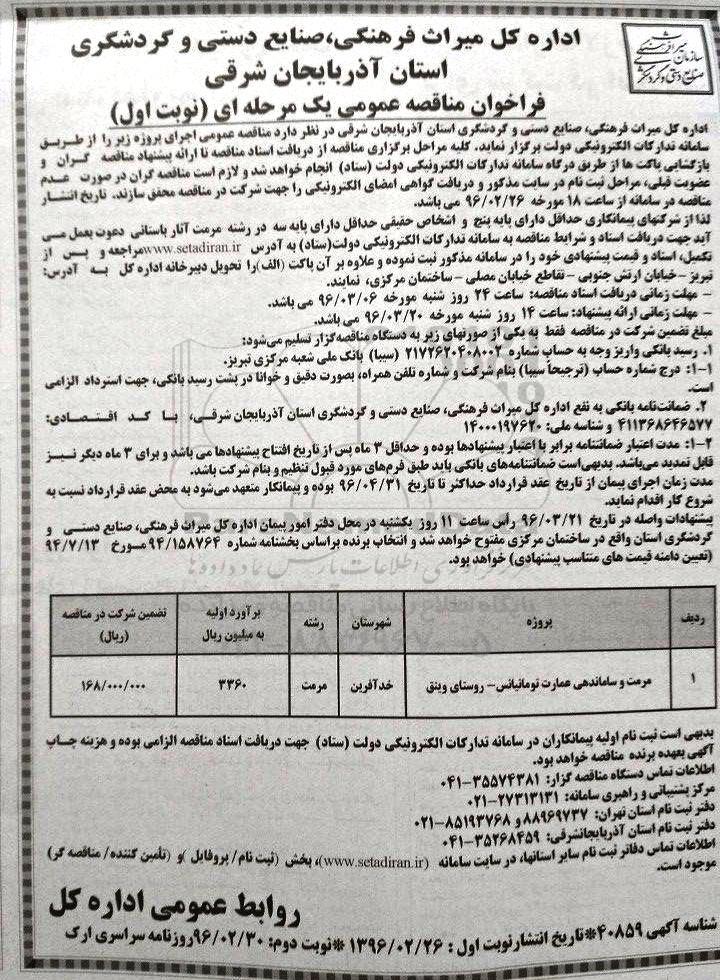 سازمان میراث فرهنگی
صنایع دستی و گردشگری
اداره کل میراث فرهنگی،صنایع دستی و گردشگری
استان آذربایجان شرقی
فراخوان مناقصه عمومی یک مرحله ای (نوبت اول)
اداره کل میراث فرهنگی، صنایع دستی و گردشگری استان آذربایجان شرقی در نظر دارد مناقصه عمومی اجرای پروژه زیر را از طریق
سامانه تدارکات الکترونیکی دولت برگزار نماید. کلیه مراحل برگزاری مناقصه از دریافت اسناد مناقصه تا ارائه پیشنهاد مناقصه گران و
بازگشایی پاکت ها از طریق درگاه سامانه تدارکات الکترونیکی دولت (ستاد) انجام خواهد شد و لازم است مناقصه گران در صورت عدم
عضویت قبلی، مراحل ثبت نام در سایت مذکور و دریافت گواهی امضای الکترونیکی را جهت شرکت در مناقصه محقق سازند. تاریخ انتشار
مناقصه در سامانه از ساعت ۱۸ مورخه ۹۶/۰۲/۲۶ می باشد.
لذا از شرکتهای پیمانکاری حداقل دارای پایه پنج و اشخاص حقیقی حداقل دارای پایه سه در رشته مرمت آثار باستانی دعوت بعمل می
آید جهت دریافت اسناد و شرایط مناقصه به سامانه تدارکات الکترونیکی دولت(ستاد) به آدرس www.setadiran.ir مراجعه و پس از
تکمیل، اسناد و قیمت پیشنهادی خود را در سامانه مذکور ثبت نموده و علاوه بر آن پاکت (الف)را تحویل دبیرخانه اداره کل به آدرس:
تبریز –خیابان ارتش جنوبی – تقاطع خیابان مصلی –ساختمان مرکزی، نمایند.
– مهلت زمانی دریافت اسناد مناقصه: ساعت ۲۴ روز شنبه مورخه ۹۶/۰۳/۰۶ می باشد.
– مهلت زمانی ارائه پیشنهاد: ساعت ۱۴ روز شنبه مورخه ۹۶/۰۳/۲۰ می باشد.
مبلغ تضمین شرکت در مناقصه فقط به یکی از صورتهای زیر به دستگاه مناقصه‌گزار تسلیم می‌شود:
۱. رسید بانکی واریز وجه به حساب شماره ۲۱۷۲۶۲۰۴۰۸۰۰۲ (سیبا) بانک ملی شعبه مرکزی تبریز.
۱–۱: درج شماره حساب (ترجیحاً سیبا) بنام شرکت و شماره تلفن همراه، بصورت دقیق و خوانا در پشت رسید بانکی، جهت استرداد الزامی
است.
۲. ضمانت‌نامه بانکی به نفع اداره کل میراث فرهنگی، صنایع دستی و گردشگری استان آذربایجان شرقی، با کد اقتصادی:
۴۱۱۳۶۸۶۴۶۵۷۷ و شناسه ملی: ۱۴۰۰۰۱۹۷۶۲۰
۲–۱: مدت اعتبار ضمانتنامه برابر با اعتبار پیشنهادها بوده و حداقل ۳ ماه پس از تاریخ افتتاح پیشنهادها می باشد و برای ۳ ماه دیگر نیز
قابل تمدید می‌باشد. بدیهی‌است ضمانتنامه‌های بانکی باید طبق فرم‌های مورد قبول تنظیم و بنام شرکت باشد.
مدت زمان اجرای پیمان از تاریخ عقد قرارداد حداکثر تا تاریخ ۹۶/۰۴/۳۱ بوده و پیمانکار متعهد می‌شود به محض عقد قرارداد نسبت به
شروع کار اقدام نماید.
پیشنهادات واصله در تاریخ ۹۶/۰۳/۲۱ رأس ساعت ۱۱ روز یکشنبه در محل دفتر امور پیمان اداره کل میراث فرهنگی، صنایع دستی و
گردشگری استان واقع در ساختمان مرکزی مفتوح خواهد شد و انتخاب برنده براساس بخشنامه شماره ۹۴/۱۵۸۷۶۴ مورخ ۹۴/۷/۱۳
(تعیین دامنه قیمت های متناسب پیشنهادی) خواهد بود.
ردیف پروژه شهرستان رشته برآورد اولیه به میلیون ریال تضمین شرکت در مناقصه (ریال)
۱ مرمت و ساماندهی عمارت تومانیانس– روستای وینق خدآفرین مرمت ۳۳۶۰ ۱۶۸/۰۰۰/۰۰۰
بدیهی است ثبت نام اولیه پیمانکاران در سامانه تدارکات الکترونیکی دولت (ستاد) جهت دریافت اسناد مناقصه الزامی بوده و هزینه چاپ
آگهی بعهده برنده مناقصه خواهد بود.
اطلاعات تماس دستگاه مناقصه گزار: ۳۵۵۷۴۳۸۱–۰۴۱
مرکز پشتیبانی و راهبری سامانه: ۲۷۳۱۳۱۳۱–۰۲۱
دفتر ثبت نام استان تهران: ۸۸۹۶۹۷۳۷ و ۸۵۱۹۳۷۶۸–۰۲۱
دفتر ثبت نام استان آذربایجانشرقی: ۳۵۲۶۸۴۵۹–۰۴۱
اطلاعات تماس دفاتر ثبت نام سایر استانها، در سایت سامانه (www.setadiran.ir)، بخش (ثبت نام/ پروفایل )و (تأمین کننده/ مناقصه گر)
موجود است.
روابط عمومی اداره کل
شناسه آگهی ۴۰۸۵۹*تاریخ انتشارنوبت اول : ۱۳۹۶/۰۲/۲۶ *نوبت دوم: ۹۶/۰۲/۳۰روزنامه سراسری ارک